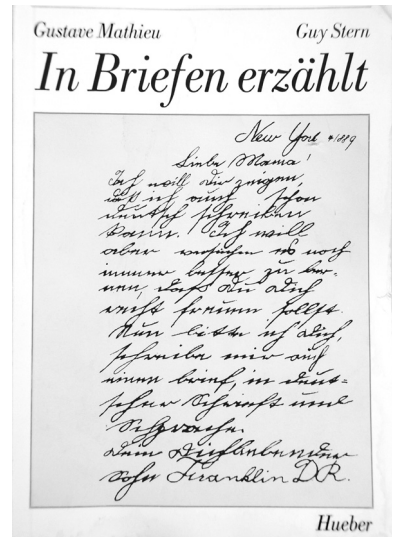 Gustave Mathieu Guy Stern
In Briefen erzählt
New York 1889
Liebe Mama!
Ich will dir zeigen,
daß ich auch schon
deutsch schreiben
kann. Ich will
aber versuchen es noch
immer besser zu ler=
nen, daß du dich
recht freuen sollst.
Nun bitte ich dich,
schreibe mir auch
einen brief, in deut=
scher Schrift und
Sprache.
Dein Dichliebender
Sohn Franklin D.R.
Hueber